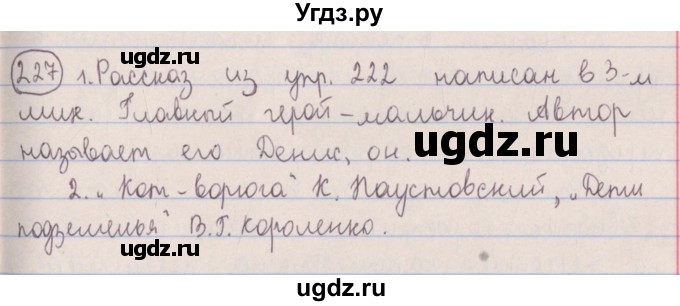 Угдз.ру
ugdz.ru ugdz.ru
227 1. Рассказ из упр. 222 написан в 3-м
лице. Главный герой - мальчик. Автор
называет его Денис, он.
ugdz.ru
2. „Кот-ворюга" К. Паустовский, „Дети
подземелья" В.Г. Короленко.
ugdz.ru ugdz.ru